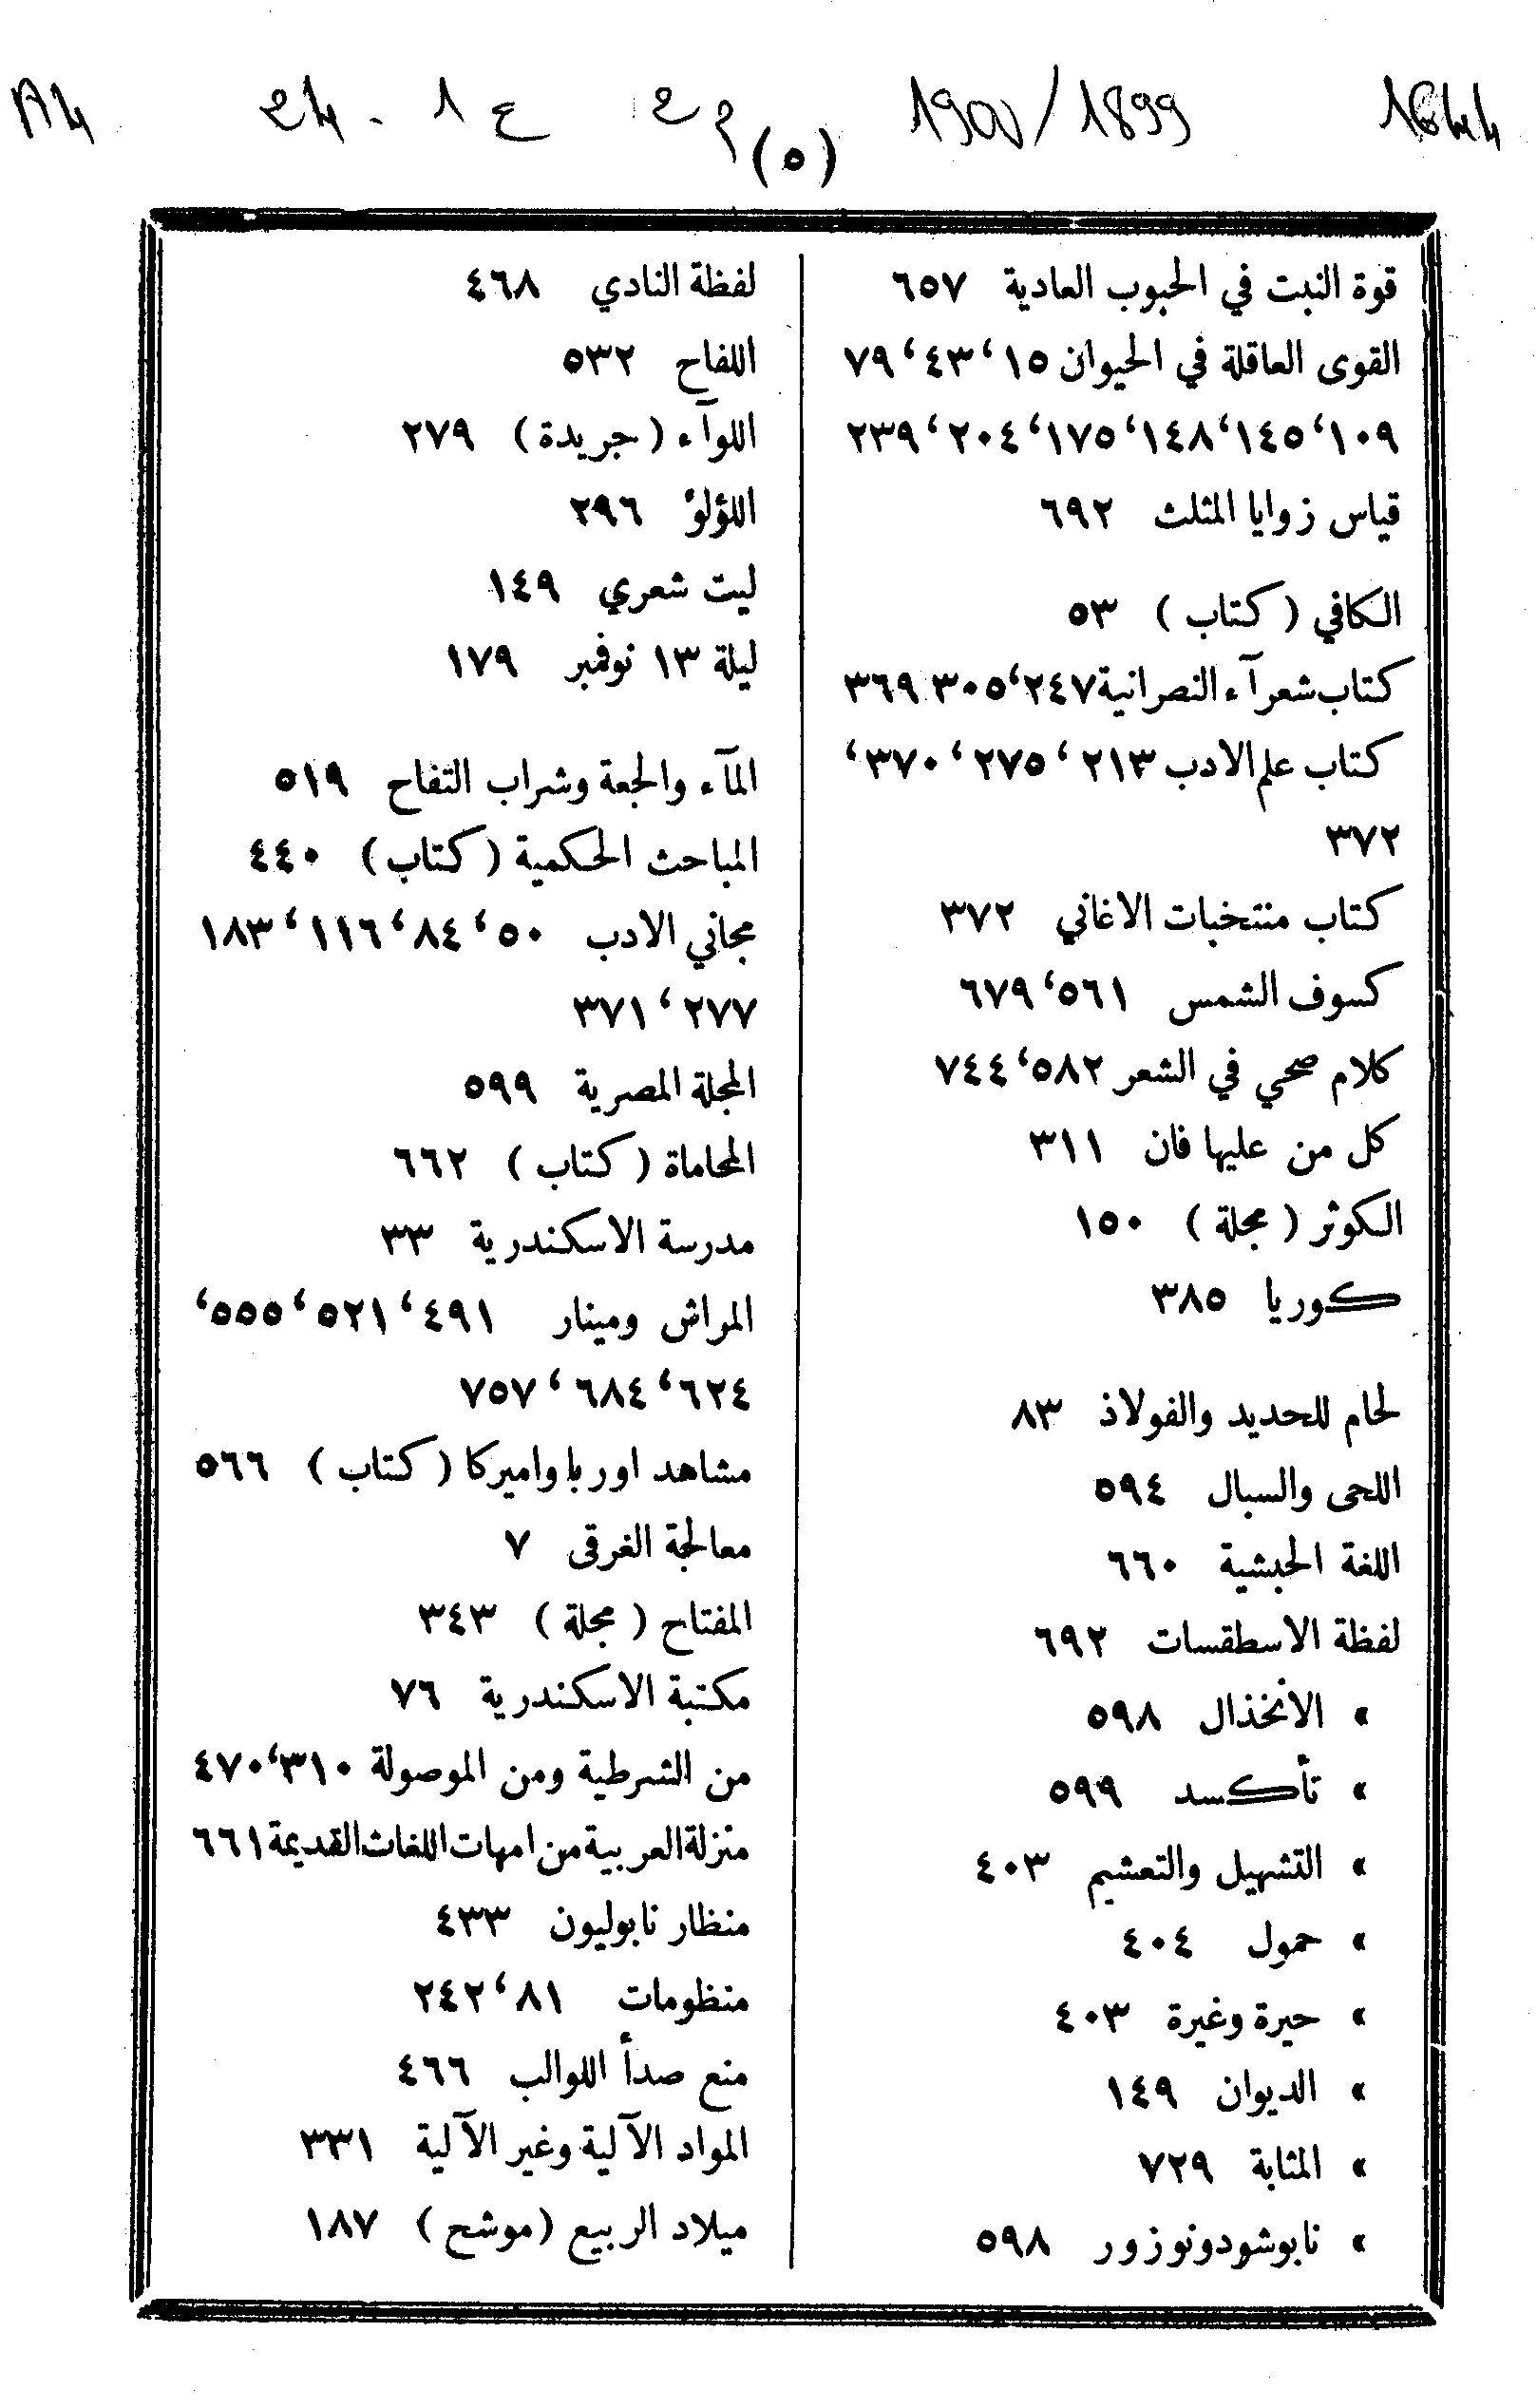 1644 1900/1899 م2 ع1 - 24 A4
(٥)
قوة النبت في الحبوب العادية ٦٥٧
القوى العاقلة في الحيوان ١٥‘٤٣‘٧٩
١٠٩‘١٤٥‘١٤٨‘١٧٥‘٢٠٤‘٢٣٩
قياس زوايا المثلث ٦٩٢
الكافي (كتاب) ٥٣
كتاب شعرآء النصرانية ٢٤٧‘٣٠٥ ٣٦٩
كتاب علم الادب ٢١٣‘٢٧٥‘٣٧٠‘
٣٧٢
كتاب منتخبات الاغاني ٣٧٢
كسوف الشمس ٥٦١‘٦٧٩
كلام صحي في الشعر ٥٨٢‘٧٤٤
كل من عليها فان ٣١١
الكوثر (مجلة) ١٥٠
كوريا ٣٨٥
لحام للحديد والفولاذ ٨٣
اللحى والسبال ٥٩٤
اللغة الحبشية ٦٦٠
لفظة الاسطقسات ٦٩٢
» الانخذال ٥٩٨
» تأكسد ٥٩٩
» التشهيل والتعشيم ٤٠٣
» حمول ٤٠٤
» حيرة وغيرة ٤٠٣
» الديوان ١٤٩
» المثابة ٧٢٩
» نابوشودونوزور ٥٩٨
لفظة النادي ٤٦٨
اللفاح ٥٣٢
اللوآء (جريدة) ٢٧٩
اللؤلؤ ٢٩٦
ليت شعري ١٤٩
ليلة ١٣ نوفمبر ١٧٩
المآء والجعة وشراب التفاح ٥١٩
المباحث الحكمية (كتاب) ٤٤٠
مجاني الادب ٥٠‘٨٤‘١١٦‘١٨٣
٢٧٧‘٣٧١
المجلة المصرية ٥٩٩
المحاماة (كتاب) ٦٦٢
مدرسة الاسكندرية ٣٣
المراش ومينار ٤٩١‘٥٢١‘٥٥٥‘
٦٢٤‘٦٨٤‘٧٥٧
مشاهد اوربا واميركا (كتاب) ٥٦٦
معالجة الغرقى ٧
المفتاح (مجلة) ٣٤٣
مكتبة الاسكندرية ٧٦
من الشرطية ومن الموصولة ٣١٠‘٤٧٠
منزلة العربية من امهات اللغات القديمة ٦٦١
منظار نابوليون ٤٣٣
منظومات ٨١‘٢٤٢
منع صدأ اللوالب ٤٦٦
المواد الآلية وغير الآلية ٣٣١
ميلاد الربيع (موشح) ١٨٧